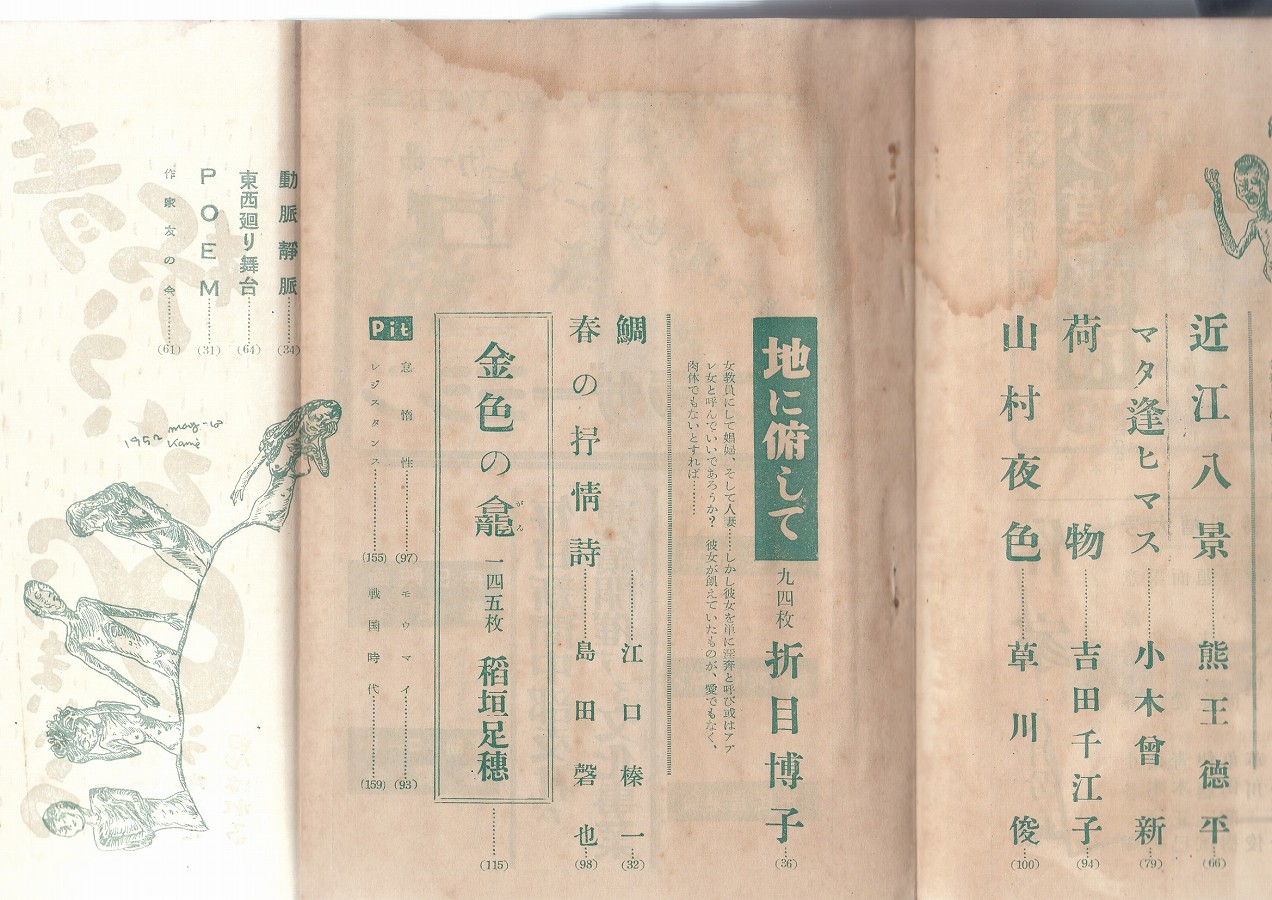 近江八景……熊王德平(66)
マタ逢ヒマス……小木曾新(79)
荷物……吉田千江子(94)
山村夜色……草川俊(100)
地に俯して 九四枚 折目博子……(36)
女教員にして娼婦、そして人妻……しかし彼女を単に淫奔と呼び或はアプ
レ女と呼んでいいであろうか? 彼女が飢えていたものが、愛でもなく、
肉体でもないとすれば………
鯛……江口榛一(32)
春の抒情詩……島田磬也(98)
金色の龕 一四五枚 稻垣足穗……(115)
がん
Pit
怠惰性……(97)
モウマイ……(93)
レジスタンス……(155)
戦国時代……(159)
動脈靜脈……(34)
東西廻り舞台……(64)
POEM……(31)
作家友の会……(61)
1952 may-
Kamé